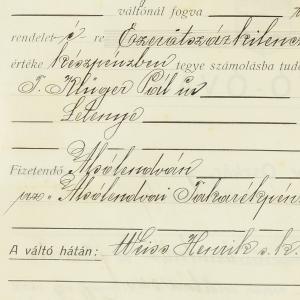 váltónál fogva
rendelet é re Ezerötszázkilencz
értéke készpénzben tegye számolásba tud
T. Klüger Pál úr
Letenye
Fizetendő Alsólendván
Alsólendvai Takarékpén
A váltó hátán: Weiss Henrik s. k.